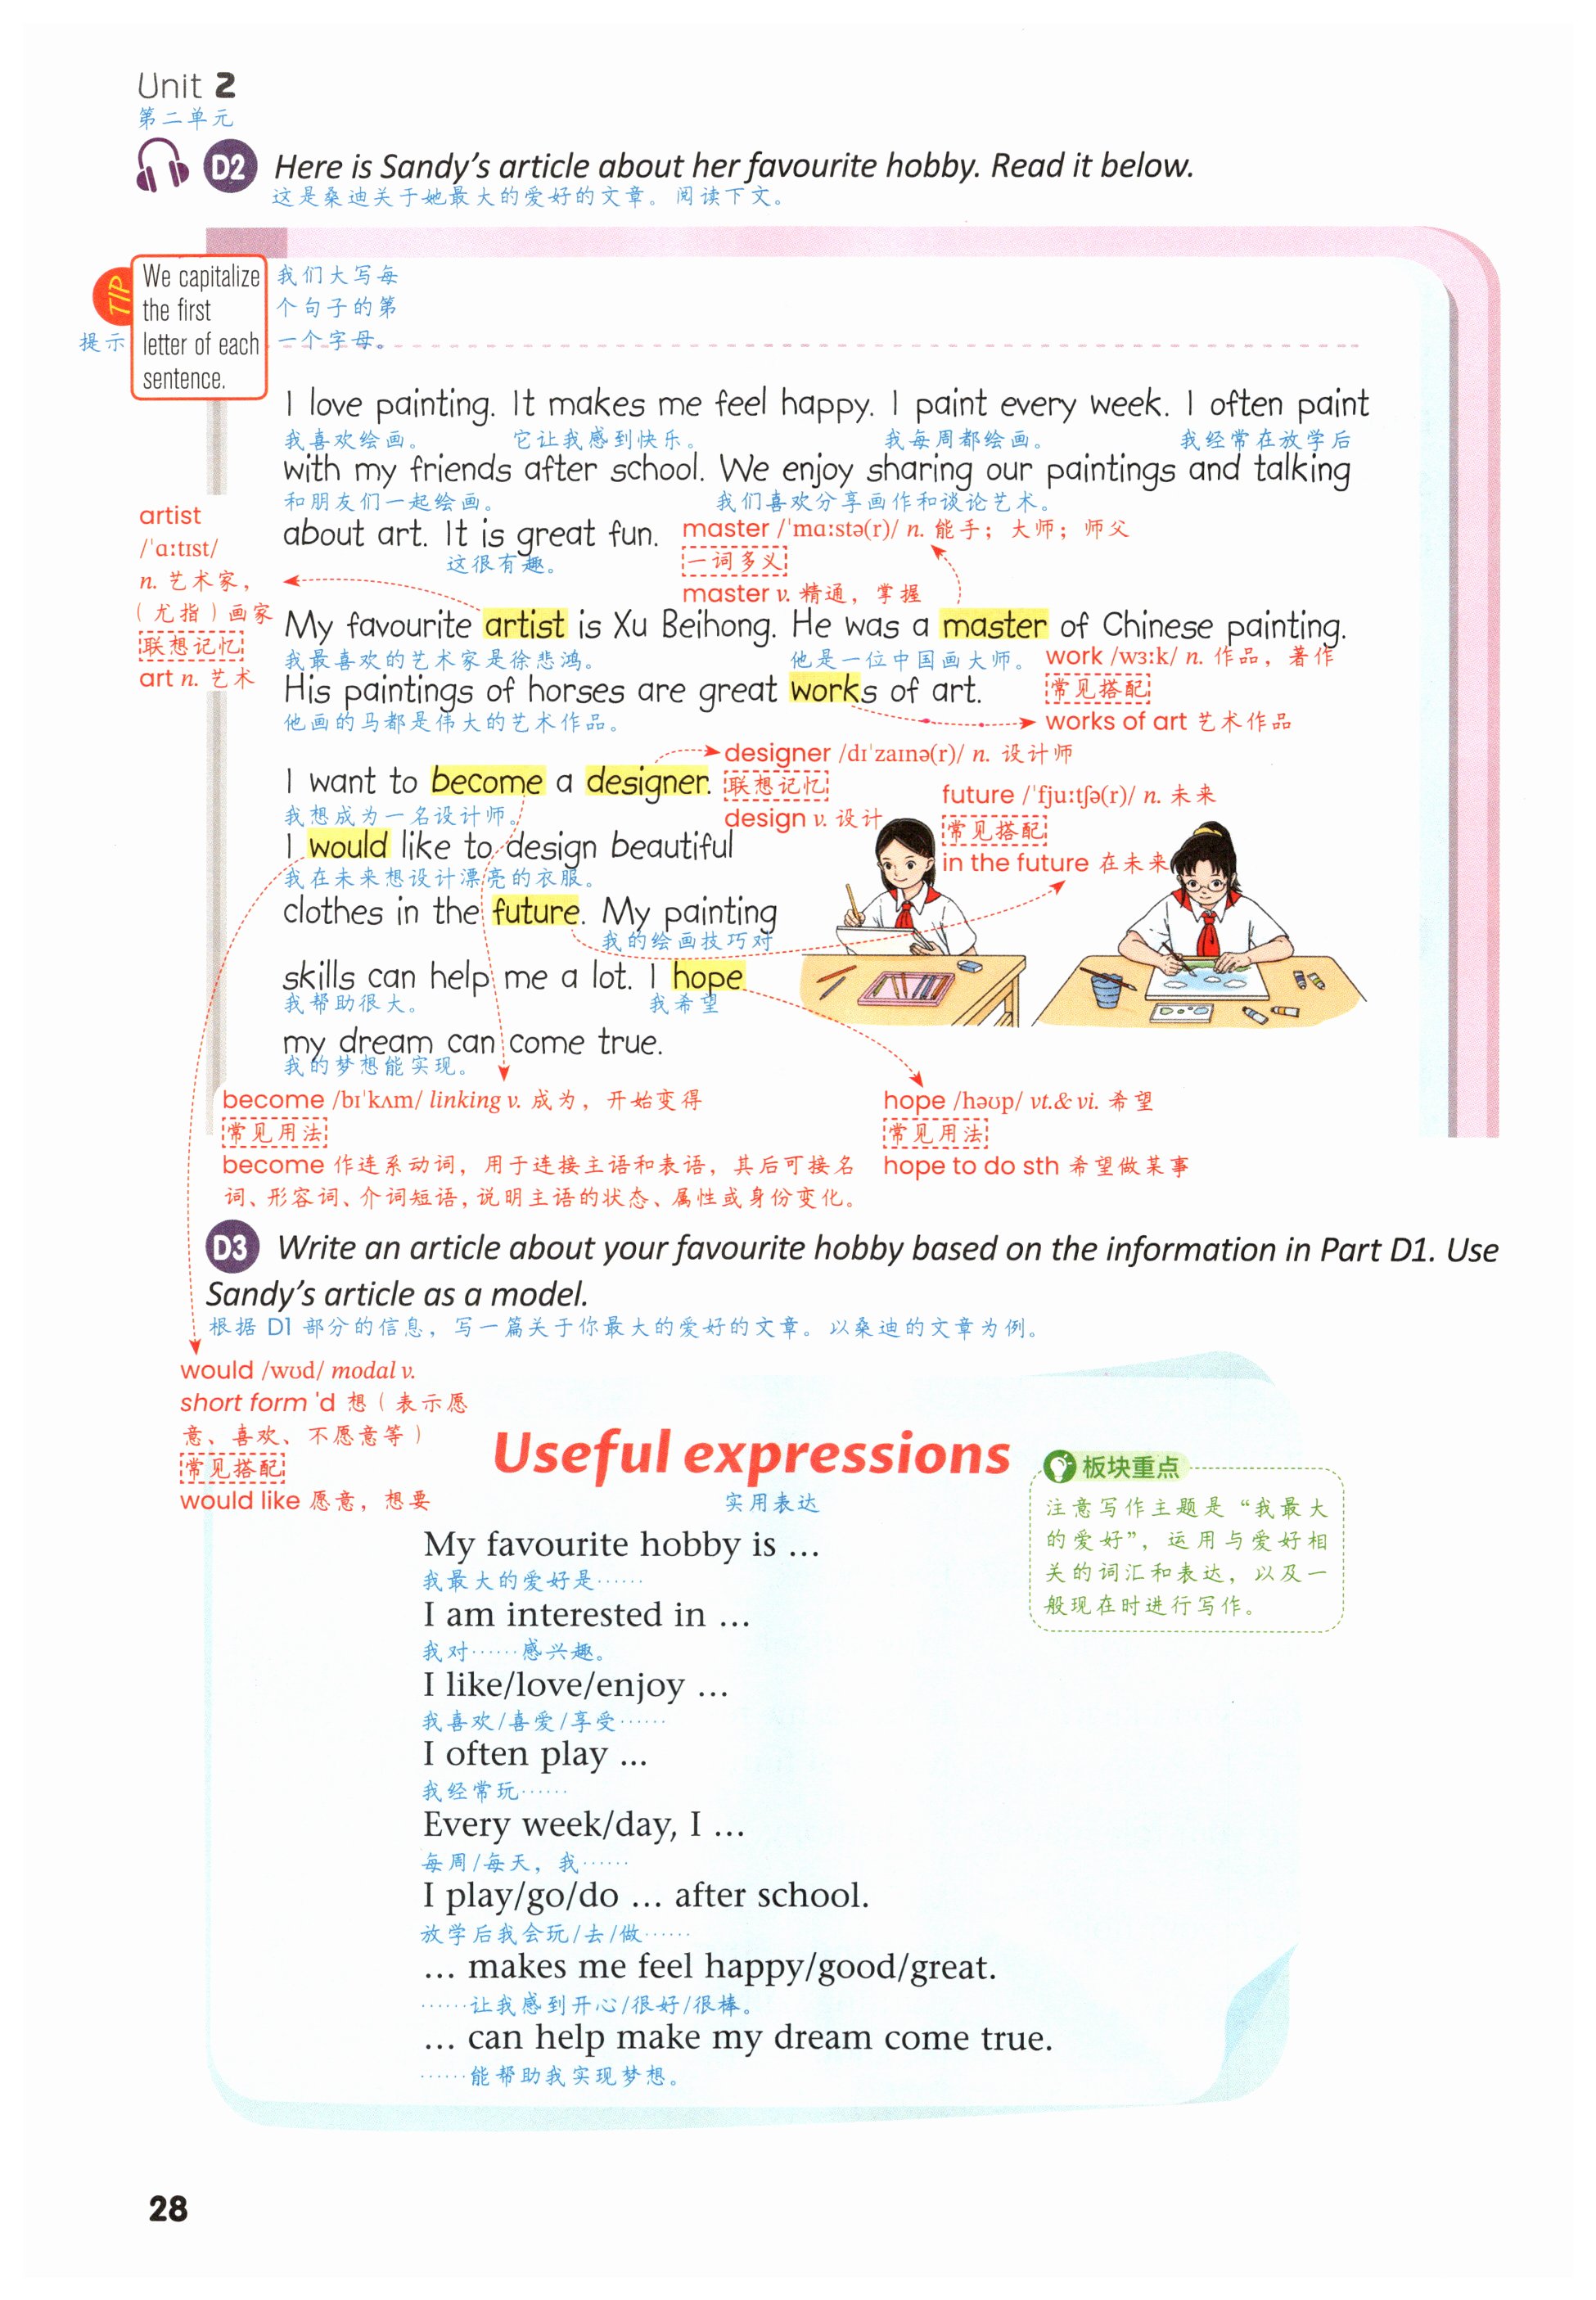 Unit 2
第二单元
D2 Here is Sandy's article about her favourite hobby. Read it below.
这是桑迪关于她最大的爱好的文章。阅读下文。
TIP
提示
We capitalize
the first
letter of each
sentence.
我们大写每
个句子的第
一个字母。
I love painting. It makes me feel happy. I paint every week. I often paint
我喜欢绘画。 它让我感到快乐。 我每周都绘画。 我经常在放学后
with my friends after school. We enjoy sharing our paintings and talking
和朋友们一起绘画。 我们喜欢分享画作和谈论艺术。
about art. It is great fun.
这很有趣。
master /ˈmɑːstə(r)/ n. 能手；大师；师父
一词多义
master v. 精通，掌握
artist
/ˈɑːtɪst/
n. 艺术家，
（尤指）画家
联想记忆
art n. 艺术
My favourite artist is Xu Beihong. He was a master of Chinese painting.
我最喜欢的艺术家是徐悲鸿。 他是一位中国画大师。
His paintings of horses are great works of art.
他画的马都是伟大的艺术作品。
work /wɜːk/ n. 作品，著作
常见搭配
works of art 艺术作品
I want to become a designer.
我想成为一名设计师。
designer /dɪˈzaɪnə(r)/ n. 设计师
联想记忆
design v. 设计
I would like to design beautiful
我在未来想设计漂亮的衣服。
clothes in the future. My painting
我的绘画技巧对
skills can help me a lot. I hope
我帮助很大。 我希望
my dream can come true.
我的梦想能实现。
future /ˈfjuːtʃə(r)/ n. 未来
常见搭配
in the future 在未来
become /bɪˈkʌm/ linking v. 成为，开始变得
常见用法
become 作连系动词，用于连接主语和表语，其后可接名
词、形容词、介词短语，说明主语的状态、属性或身份变化。
hope /həʊp/ vt.& vi. 希望
常见用法
hope to do sth 希望做某事
D3 Write an article about your favourite hobby based on the information in Part D1. Use
Sandy's article as a model.
根据 D1 部分的信息，写一篇关于你最大的爱好的文章。以桑迪的文章为例。
would /wʊd/ modal v.
short form 'd 想（表示愿
意、喜欢、不愿意等）
常见搭配
would like 愿意，想要
Useful expressions
实用表达
板块重点
注意写作主题是“我最大
的爱好”，运用与爱好相
关的词汇和表达，以及一
般现在时进行写作。
My favourite hobby is …
我最大的爱好是……
I am interested in …
我对……感兴趣。
I like/love/enjoy …
我喜欢/喜爱/享受……
I often play …
我经常玩……
Every week/day, I …
每周/每天，我……
I play/go/do … after school.
放学后我会玩/去/做……
… makes me feel happy/good/great.
……让我感到开心/很好/很棒。
… can help make my dream come true.
……能帮助我实现梦想。
28